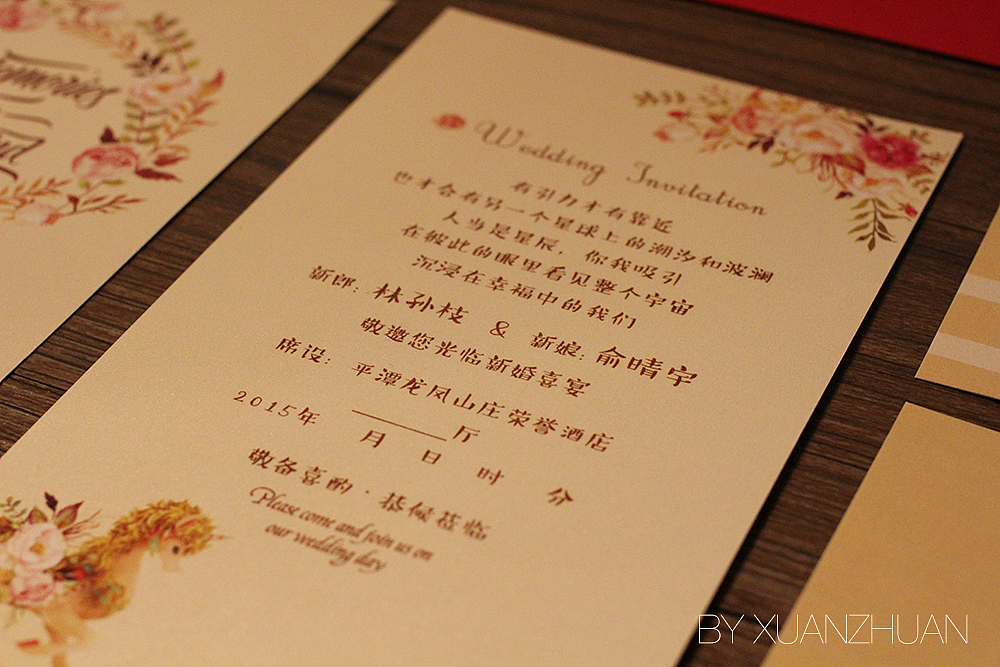 Memories
Wedding Invitation
有引力才有靠近
也才会有另一个星球上的潮汐和波澜
人当是星辰，你我吸引
在彼此的眼里看见整个宇宙
沉浸在幸福中的我们
新郎：林孙枝 & 新娘：俞晴宇
敬邀您光临新婚喜宴
席设：平潭龙凤山庄荣誉酒店
______厅
2015年 月 日 时 分
敬备喜酌·恭候莅临
Please come and join us on
our wedding day
BY XUANZHUAN